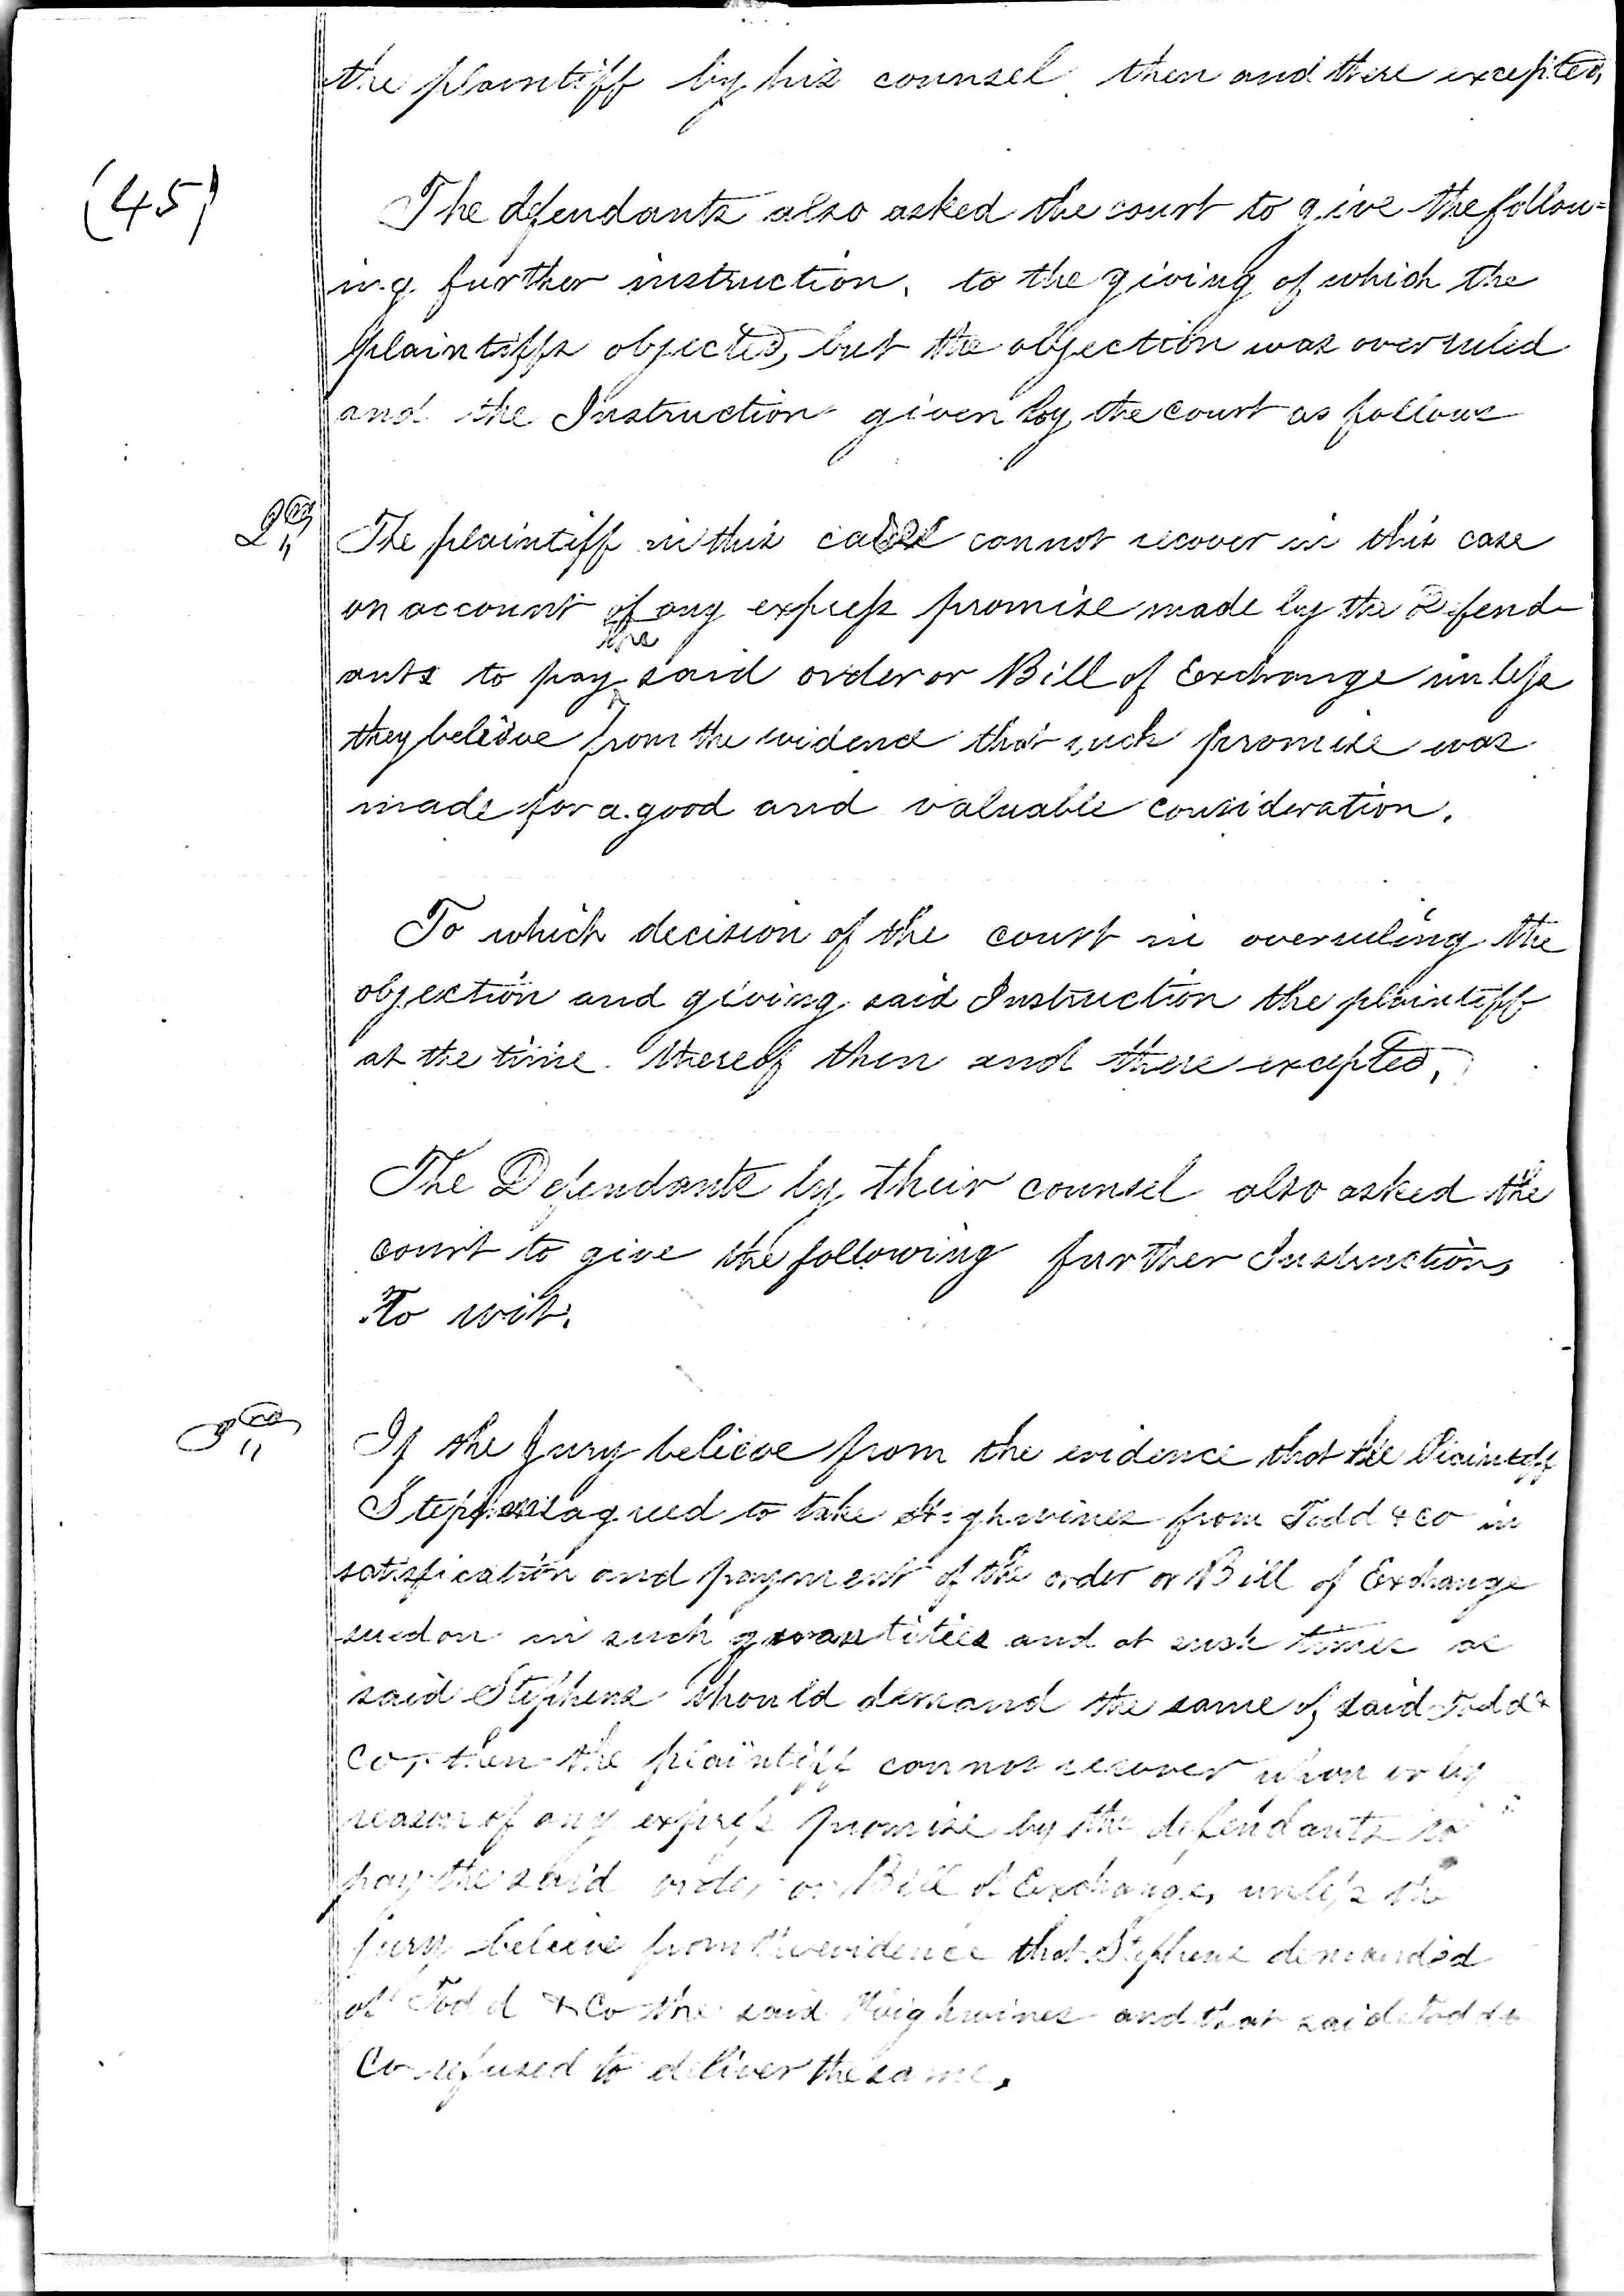 the plaintiff by his counsel then and there excepted,
(45)
The defendants also asked the court to give the follow=
ing further instruction, to the giving of which the
plaintiffs objected, but the objection was overruled
and the Instruction given by the court as follows
2nd
The plaintiff in this case cannot recover in this case
on account of any express promise made by the Defend-
ants to pay the said order or Bill of Exchange unless
they believe from the evidence that such promise was
made for a good and valuable consideration.
To which decision of the court in overruling the
objection and giving said Instruction the plaintiff
at the time thereof then and there excepted,
The Defendants by their counsel also asked the
court to give the following further Instructions
To wit.
3rd
If the Jury believe from the evidence that the Plaintiff
Stephens agreed to take Highwines from Todd & Co in
satisfication and payment of the order or Bill of Exchange
sued on in such quantities and at such times as
said Stephens should demand the same of said Todd &
Co, then the plaintiff cannot recover upon or by
reason of any express promise by the defendants to
pay the said order or Bill of Exchange, unless the
jury believe from the evidence that Stephens demanded
of Todd & Co the said Highwines and that said Todd &
Co refused to deliver the same.